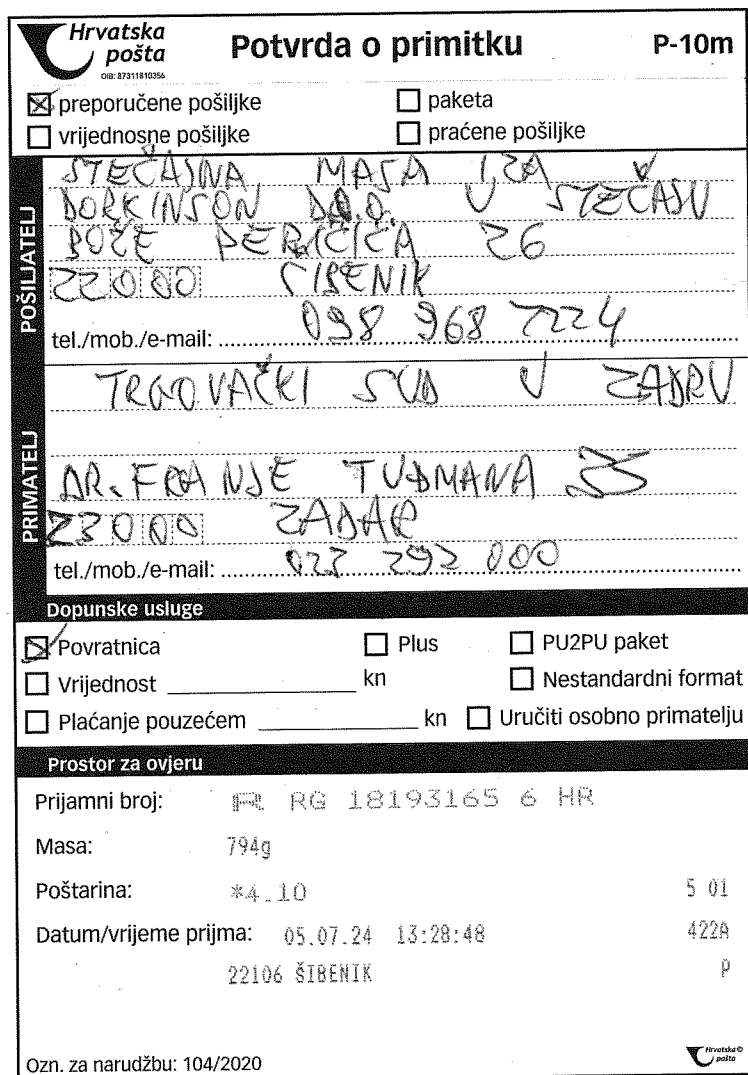 Hrvatska
pošta
OIB: 87311810356
Potvrda o primitku
P-10m
preporučene pošiljke
paketa
vrijednosne pošiljke
praćene pošiljke
POŠILJATELJ
STEČAJNA MASA IZA
DORKINSON D.O.O. U STEČAJU
BOŽE PERIČIĆA 26
22000 ŠIBENIK
tel./mob./e-mail: 098 968 7224
PRIMATELJ
TRGOVAČKI SUD U ZADRU
DR. FRANJE TUĐMANA 35
23000 ZADAR
tel./mob./e-mail: 023 292 000
Dopunske usluge
Povratnica
Plus
PU2PU paket
Vrijednost kn
Nestandardni format
Plaćanje pouzećem kn
Uručiti osobno primatelju
Prostor za ovjeru
Prijamni broj: R RG 18193165 6 HR
Masa: 794g
Poštarina: *4.10 5 01
Datum/vrijeme prijma: 05.07.24 13:28:48 422A
22106 ŠIBENIK P
Ozn. za narudžbu: 104/2020
Hrvatska
pošta